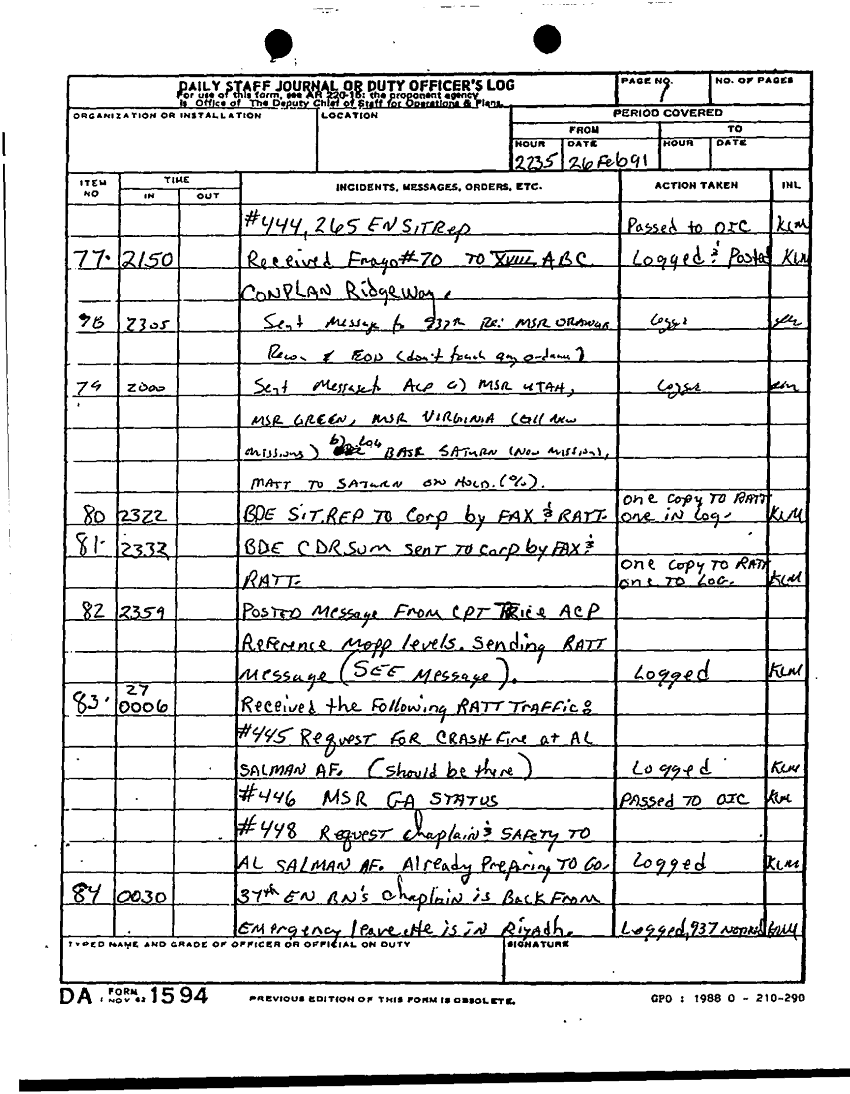 DAILY STAFF JOURNAL OR DUTY OFFICER'S LOG
For use of this form, see AR 220-15; the proponent agency
is Office of The Deputy Chief of Staff for Operations & Plans.
PAGE NO. 7
NO. OF PAGES
ORGANIZATION OR INSTALLATION
LOCATION
PERIOD COVERED
FROM TO
HOUR DATE HOUR DATE
2235 26 Feb 91
ITEM NO TIME IN OUT INCIDENTS, MESSAGES, ORDERS, ETC. ACTION TAKEN INL
#444, 265 EN SITRep Passed to OIC KLM
77. 2150 Received Frago #70 TO XVIII ABC Logged & Posted KLM
CONPLAN RidgeWay.
78 2305 Sent Message to 937th Re: MSR
Recon & EOD (don't touch any
79 2000 Sent Message to ACP a) MSR UTAH,
MSR GREEN, MSR VIRGINIA (all new
missions) b) Log BASE SATURN (New mission),
MATT TO SATURN ON HOLD. (%).
80 2322 BDE SIT.REP TO Corp by FAX & RATT. one copy TO RATT
one IN Log. KLM
81. 2332 BDE CDR.Sum sent TO Corp by FAX &
RATT. one copy TO RATT
one TO LOG. KLM
82 2359 POSTED Message From CPT Rice ACP
Reference Mopp levels. Sending RATT
Message (SEE Message). Logged KLM
83. 27 0006 Received the Following RATT Traffic:
#445 Request FOR CRASH Fire at AL
SALMAN AF. (should be there) Logged KLM
#446 MSR GA STATUS PASSED TO OIC KLM
#448 Request chaplain & SAFETY TO
AL SALMAN AF. Already Preparing TO Go. Logged KLM
84 0030 37th EN BN's Chaplain is Back From
Emergency leave. He is in Riyadh. Logged, 937 KLM
TYPED NAME AND GRADE OF OFFICER OR OFFICIAL ON DUTY
SIGNATURE
DA FORM 1 NOV 62 1594
PREVIOUS EDITION OF THIS FORM IS OBSOLETE.
GPO : 1988 O - 210-290